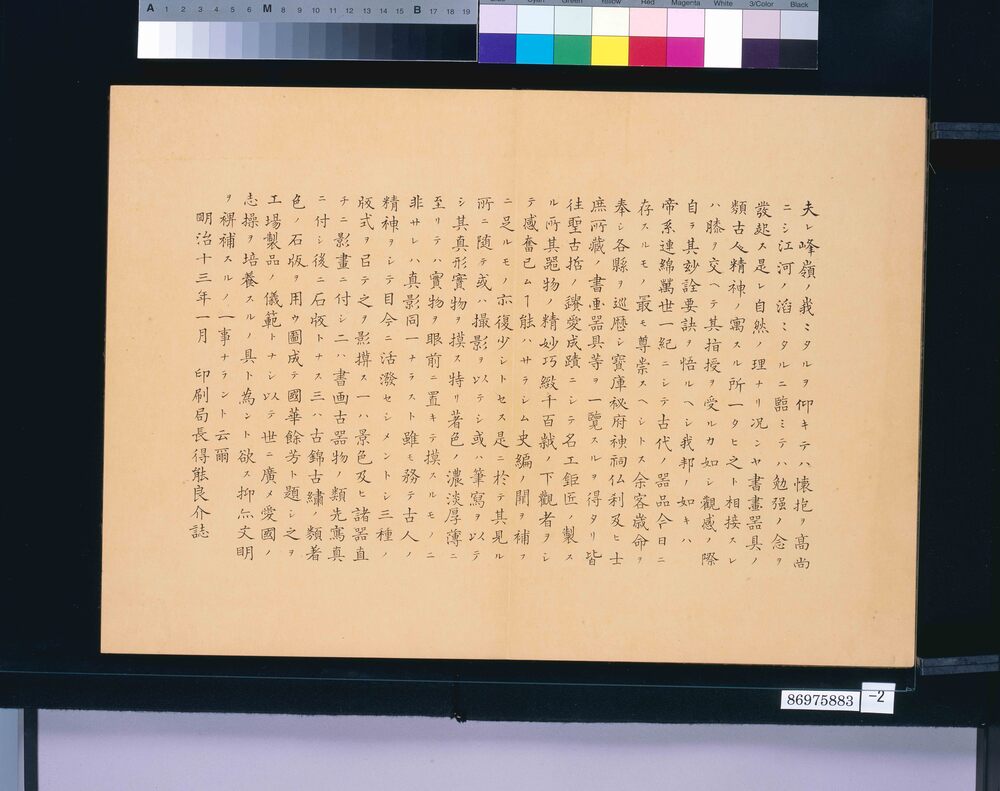 夫レ峰嶺ノ我ミタルヲ仰キテハ懐抱ヲ高尚
ニシ江河ノ滔ミタルニ臨ミテハ勉强ノ念ヲ
發起ス是レ自然ノ理ナリ况ンヤ書畫器具ノ
類古人精神ノ寓スル所一タヒ之ト相接スレ
ハ膝ヲ交ヘテ其指授ヲ受ルカ如シ觀感ノ際
自ラ其妙詮要訣ヲ悟ルヘシ我邦ノ如キハ
帝系連綿萬世一紀ニシテ古代ノ器品今日ニ
存スルモノ最モ尊崇スヘシトス余客歳命ヲ
奉シ各縣ヲ巡歴シ寳庫秘府神祠仏刹及ヒ士
庶所藏ノ書画器具等ヲ一覽スルヲ得タリ皆
往聖古哲ノ遺愛成蹟ニシテ名工鉅匠ノ製ス
ル所其器物ノ精妙巧緻千百載ノ下觀者ヲシ
テ感奮已ムヿ能ハサラシム史編ノ闕ヲ補フ
ニ足ルモノ亦復少シトセス是ニ於テ其見ル
所ニ随テ或ハ撮影ヲ以テシ或ハ筆寫ヲ以テ
シ其真形實物ヲ摸ス特リ著色ノ濃淡厚薄ニ
至リテハ實物ヲ眼前ニ置キテ摸スルモノニ
非サレハ真影同一ナラスト雖モ務テ古人ノ
精神ヲシテ目今ニ活潑セシメントシ三種ノ
版式ヲ以テ之ヲ影撲ス一ハ景色及ヒ諸器直
チニ影畫ニ付シ二ハ書画古器物ノ類先寫真
ニ付シ後ニ石版トナス三ハ古錦古繡ノ類著
色ノ石版ヲ用ウ圖成テ國華餘芳ト題シ之ヲ
工場製品ノ儀範トナシ以テ世ニ廣メ愛國ノ
志操ヲ培養スルノ具ト為ント欲ス抑亦文明
ヲ裨補スルノ一事ナラント云爾
明治十三年一月　印刷局長得能良介誌
86975883
-2
A 1 2 3 4 5 6 M 8 9 10 11 12 13 14 15 B 17 18 19
Green Yellow Red Magenta White 3/Color Black